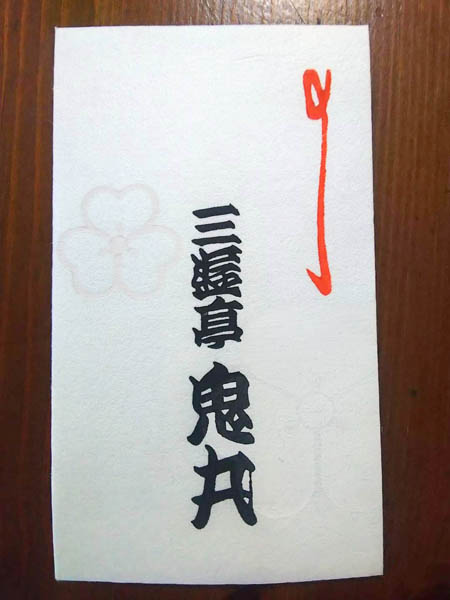 三遊亭 鬼丸